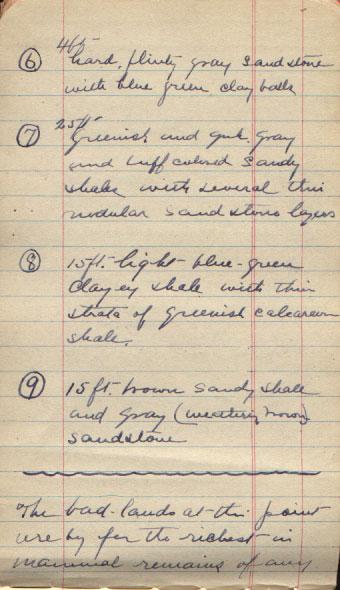 ⑥ 4 ft
hard, flinty gray sandstone
with blue green clay balls
⑦ 25 ft
Greenish and gray
and buff colored sandy
shales with several thin
nodular sandstone layers
⑧ 15 ft. light blue-green
clayey shale with thin
strata of greenish calcareous
shale.
⑨ 15 ft. brown sandy shale
and gray (weathering brown)
sandstone
The bad-lands at this point
are by far the richest in
mammal remains of any